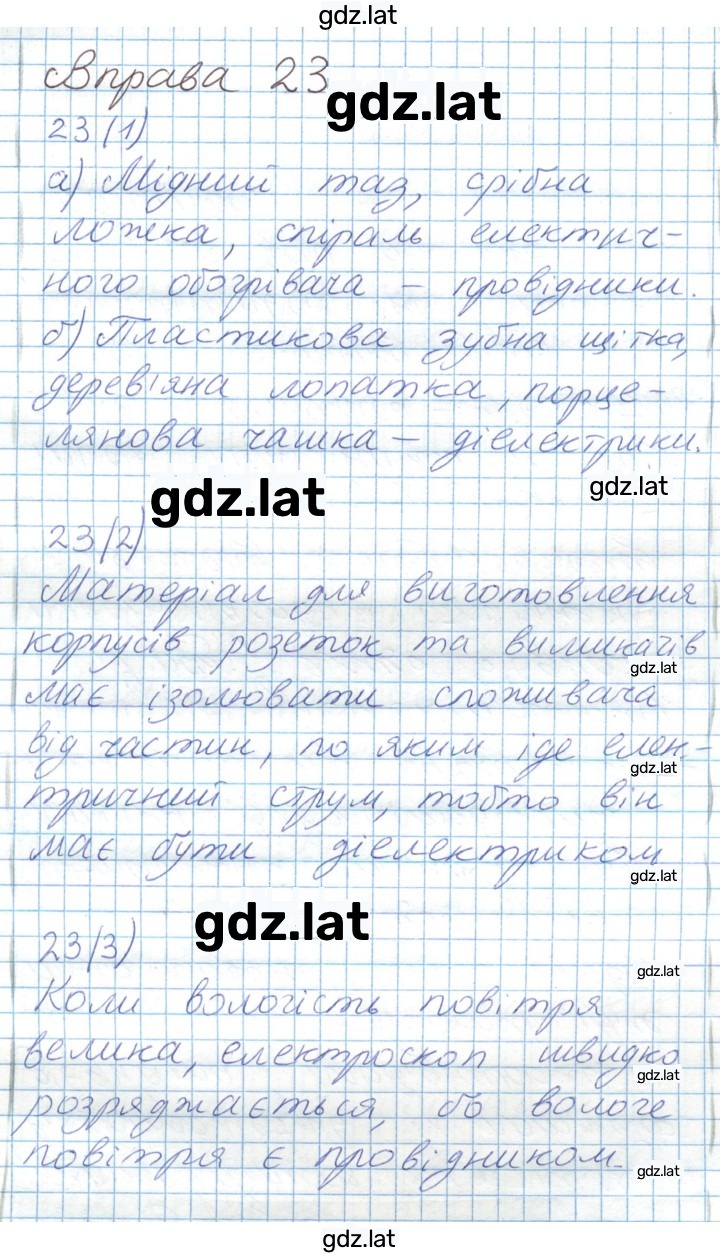 gdz.lat
Вправа 23
gdz.lat
23(1)
а) Мідний таз, срібна
ложка, спіраль електич-
ного обогрівача – провідники.
б) Пластикова зубна щітка,
дерев'яна лопатка, порце-
лянова чашка – діелектрики.
gdz.lat
gdz.lat
23(2)
Матеріал для виготовлення
корпусів розеток та вимикачів
gdz.lat
має ізолювати споживача
від частин, по яким іде елек-
gdz.lat
тричний струм, тобто він
має бути діелектриком
gdz.lat
gdz.lat
23(3)
gdz.lat
Коли вологість повітря
велика, електроскоп швидко
gdz.lat
розряджається, бо вологе
повітря є провідником.
gdz.lat
gdz.lat